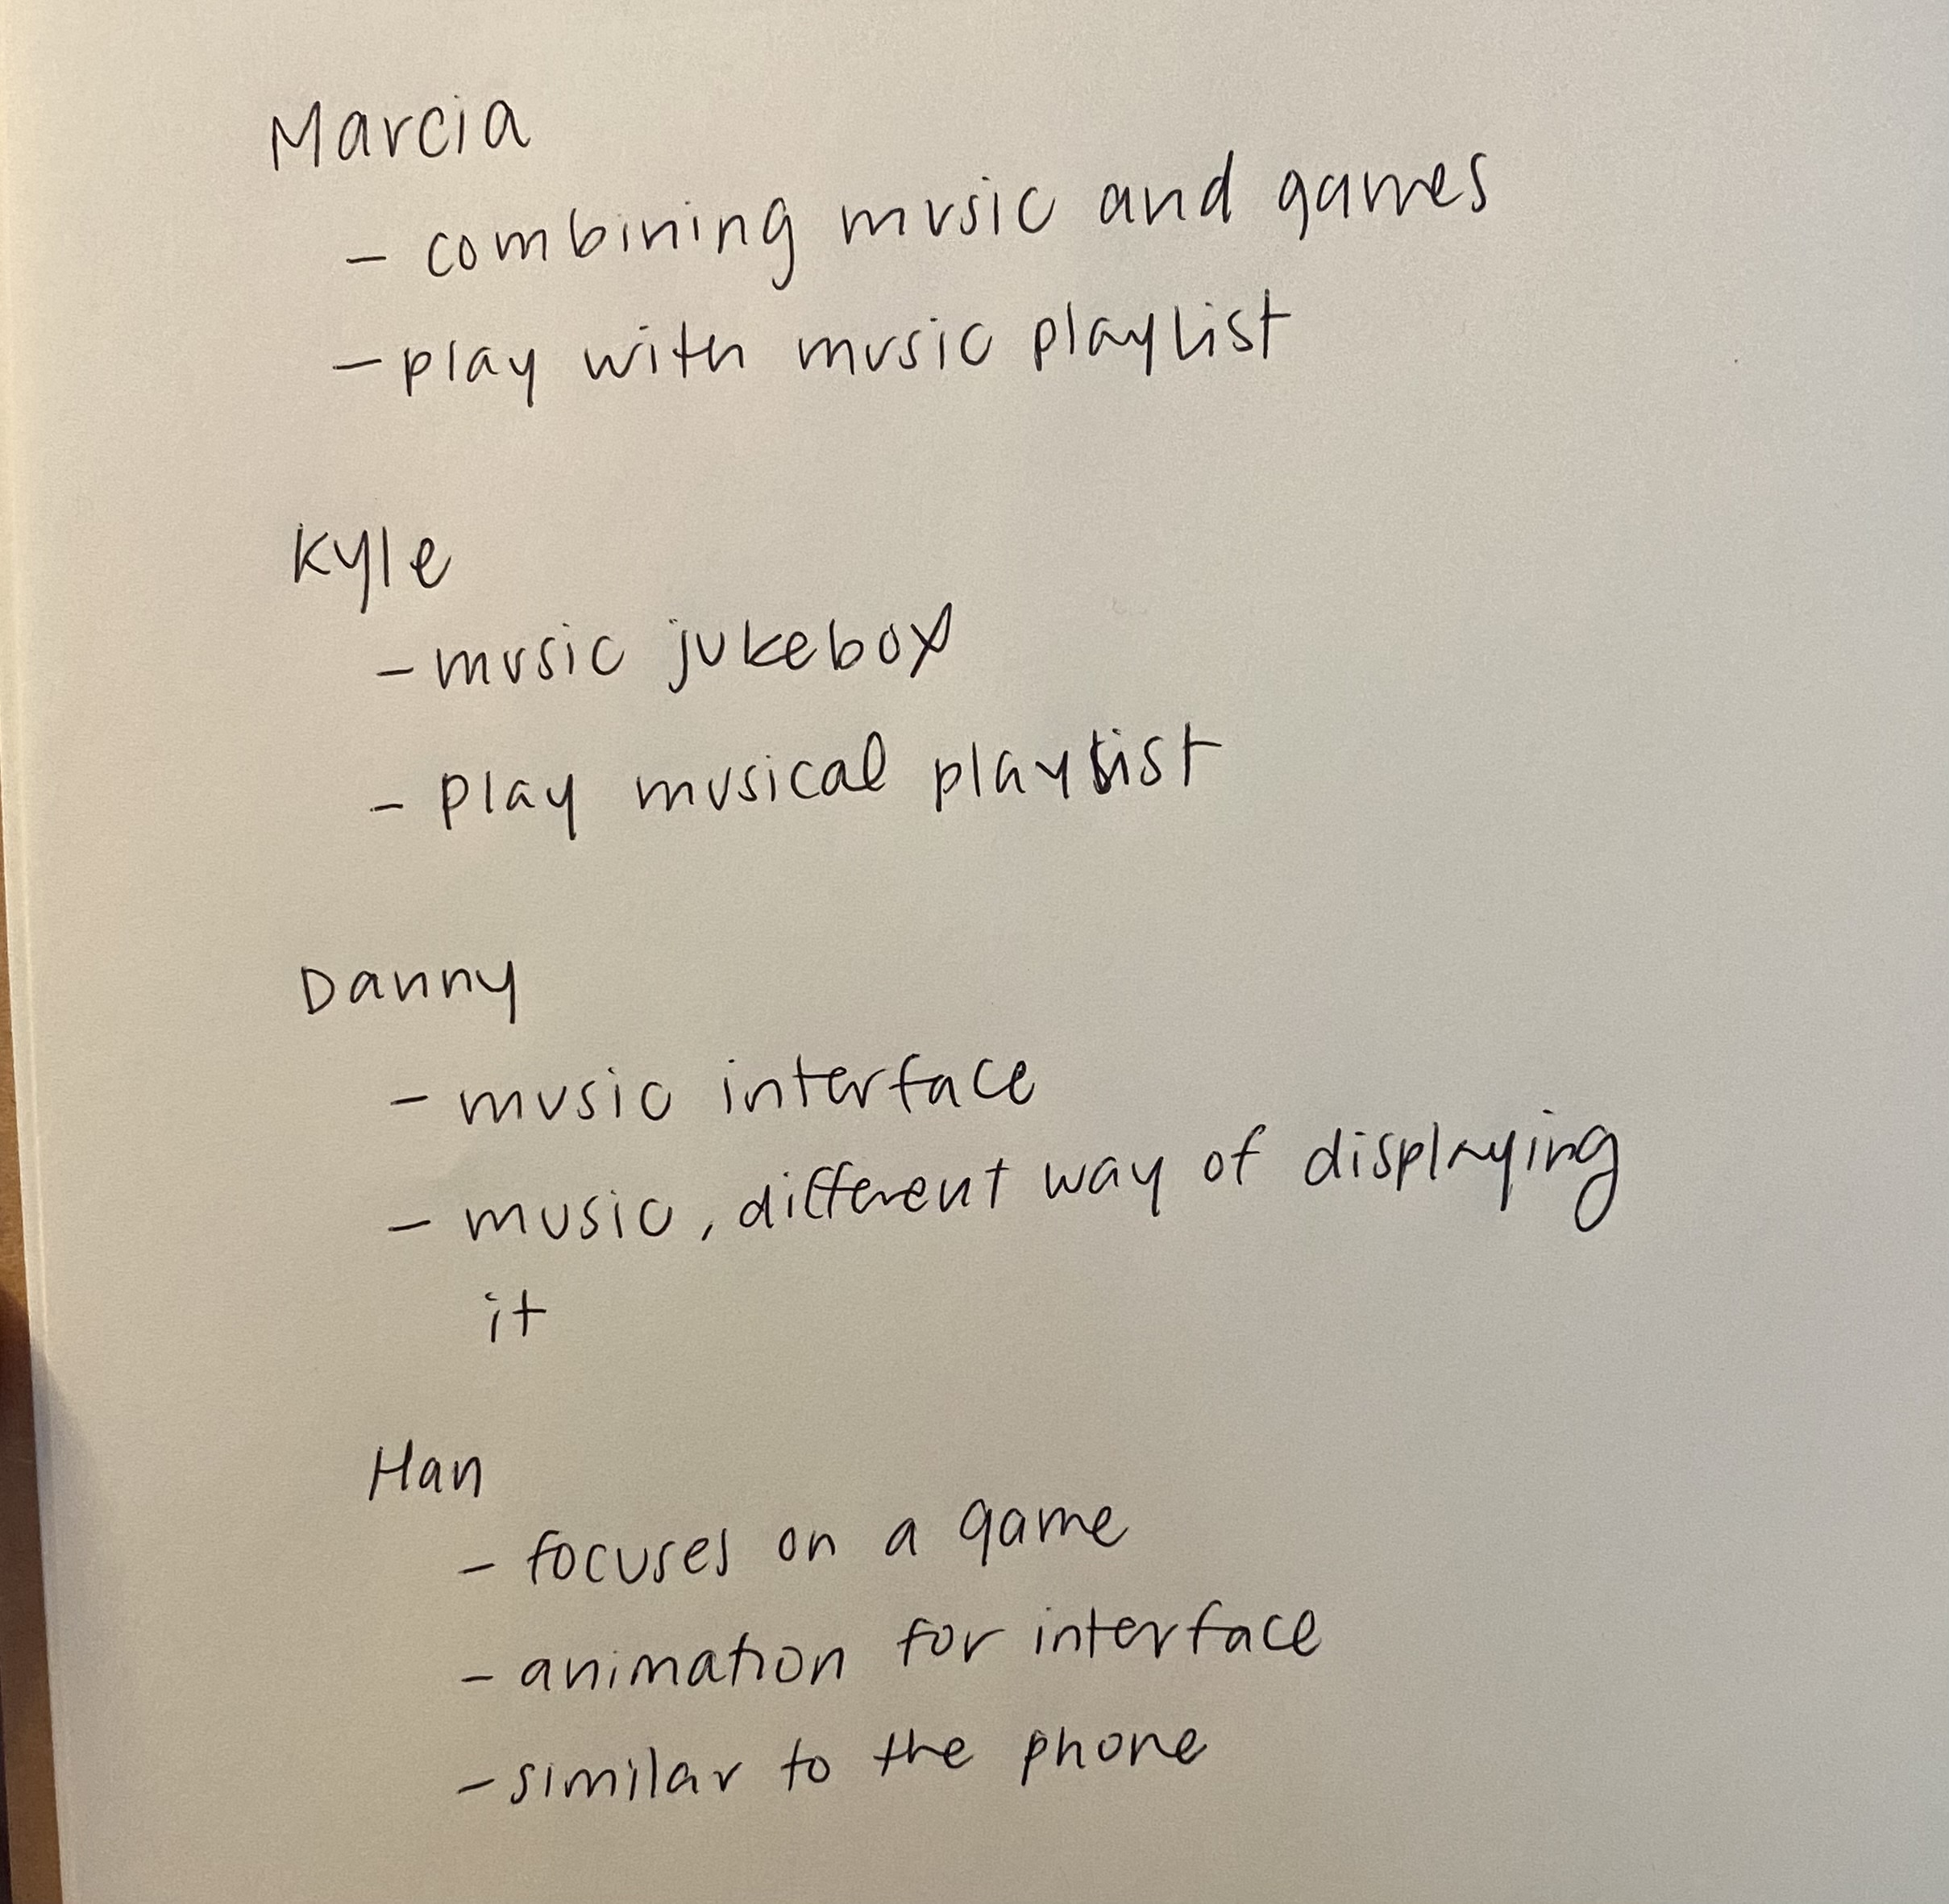 Marcia
- combining music and games
- play with music playlist
Kyle
- music jukebox
- play musical playlist
Danny
- music interface
- music, different way of displaying
it
Han
- focuses on a game
- animation for interface
- similar to the phone